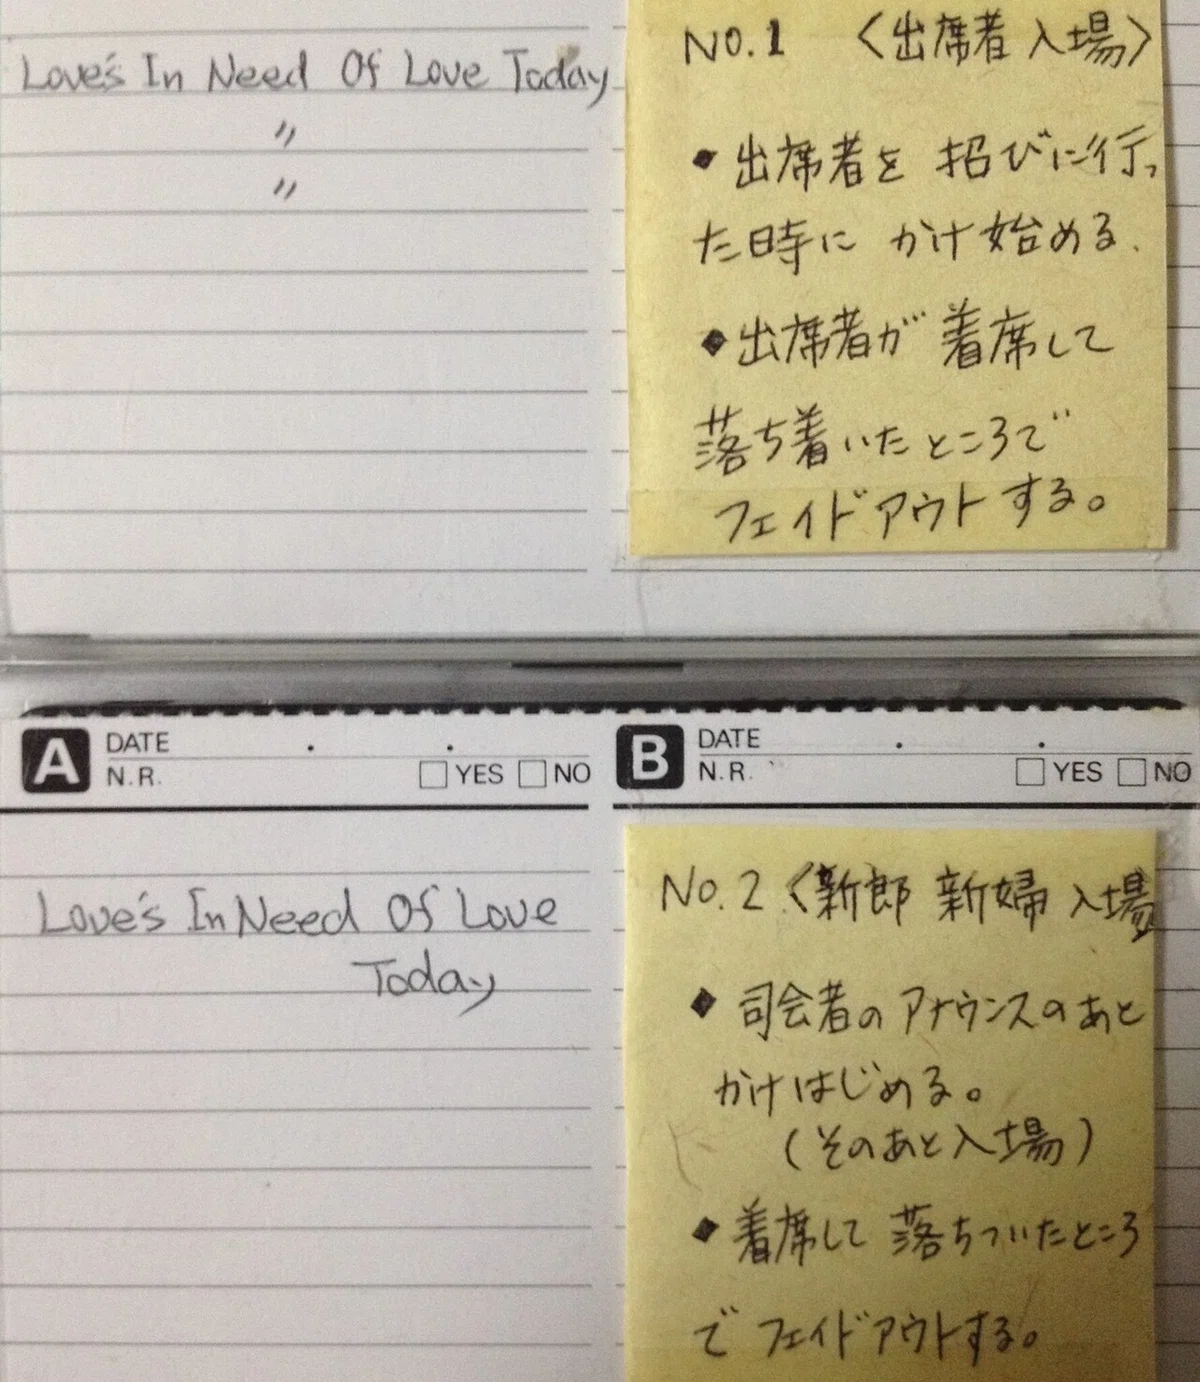 Love's In Need Of Love Today
〃
〃
NO.1 〈出席者 入場〉
• 出席者を 招びに行っ
た時に かけ始める.
• 出席者が 着席して
落ち着いたところで
フェイドアウトする。
A DATE . .
N.R. □YES □NO
B DATE . .
N.R. □YES □NO
Love's In Need Of Love
Today
No.2 〈新郎 新婦 入場
◆ 司会者のアナウンスのあと
かけはじめる。
(そのあと入場)
◆ 着席して 落ちついたところ
で フェイドアウトする。